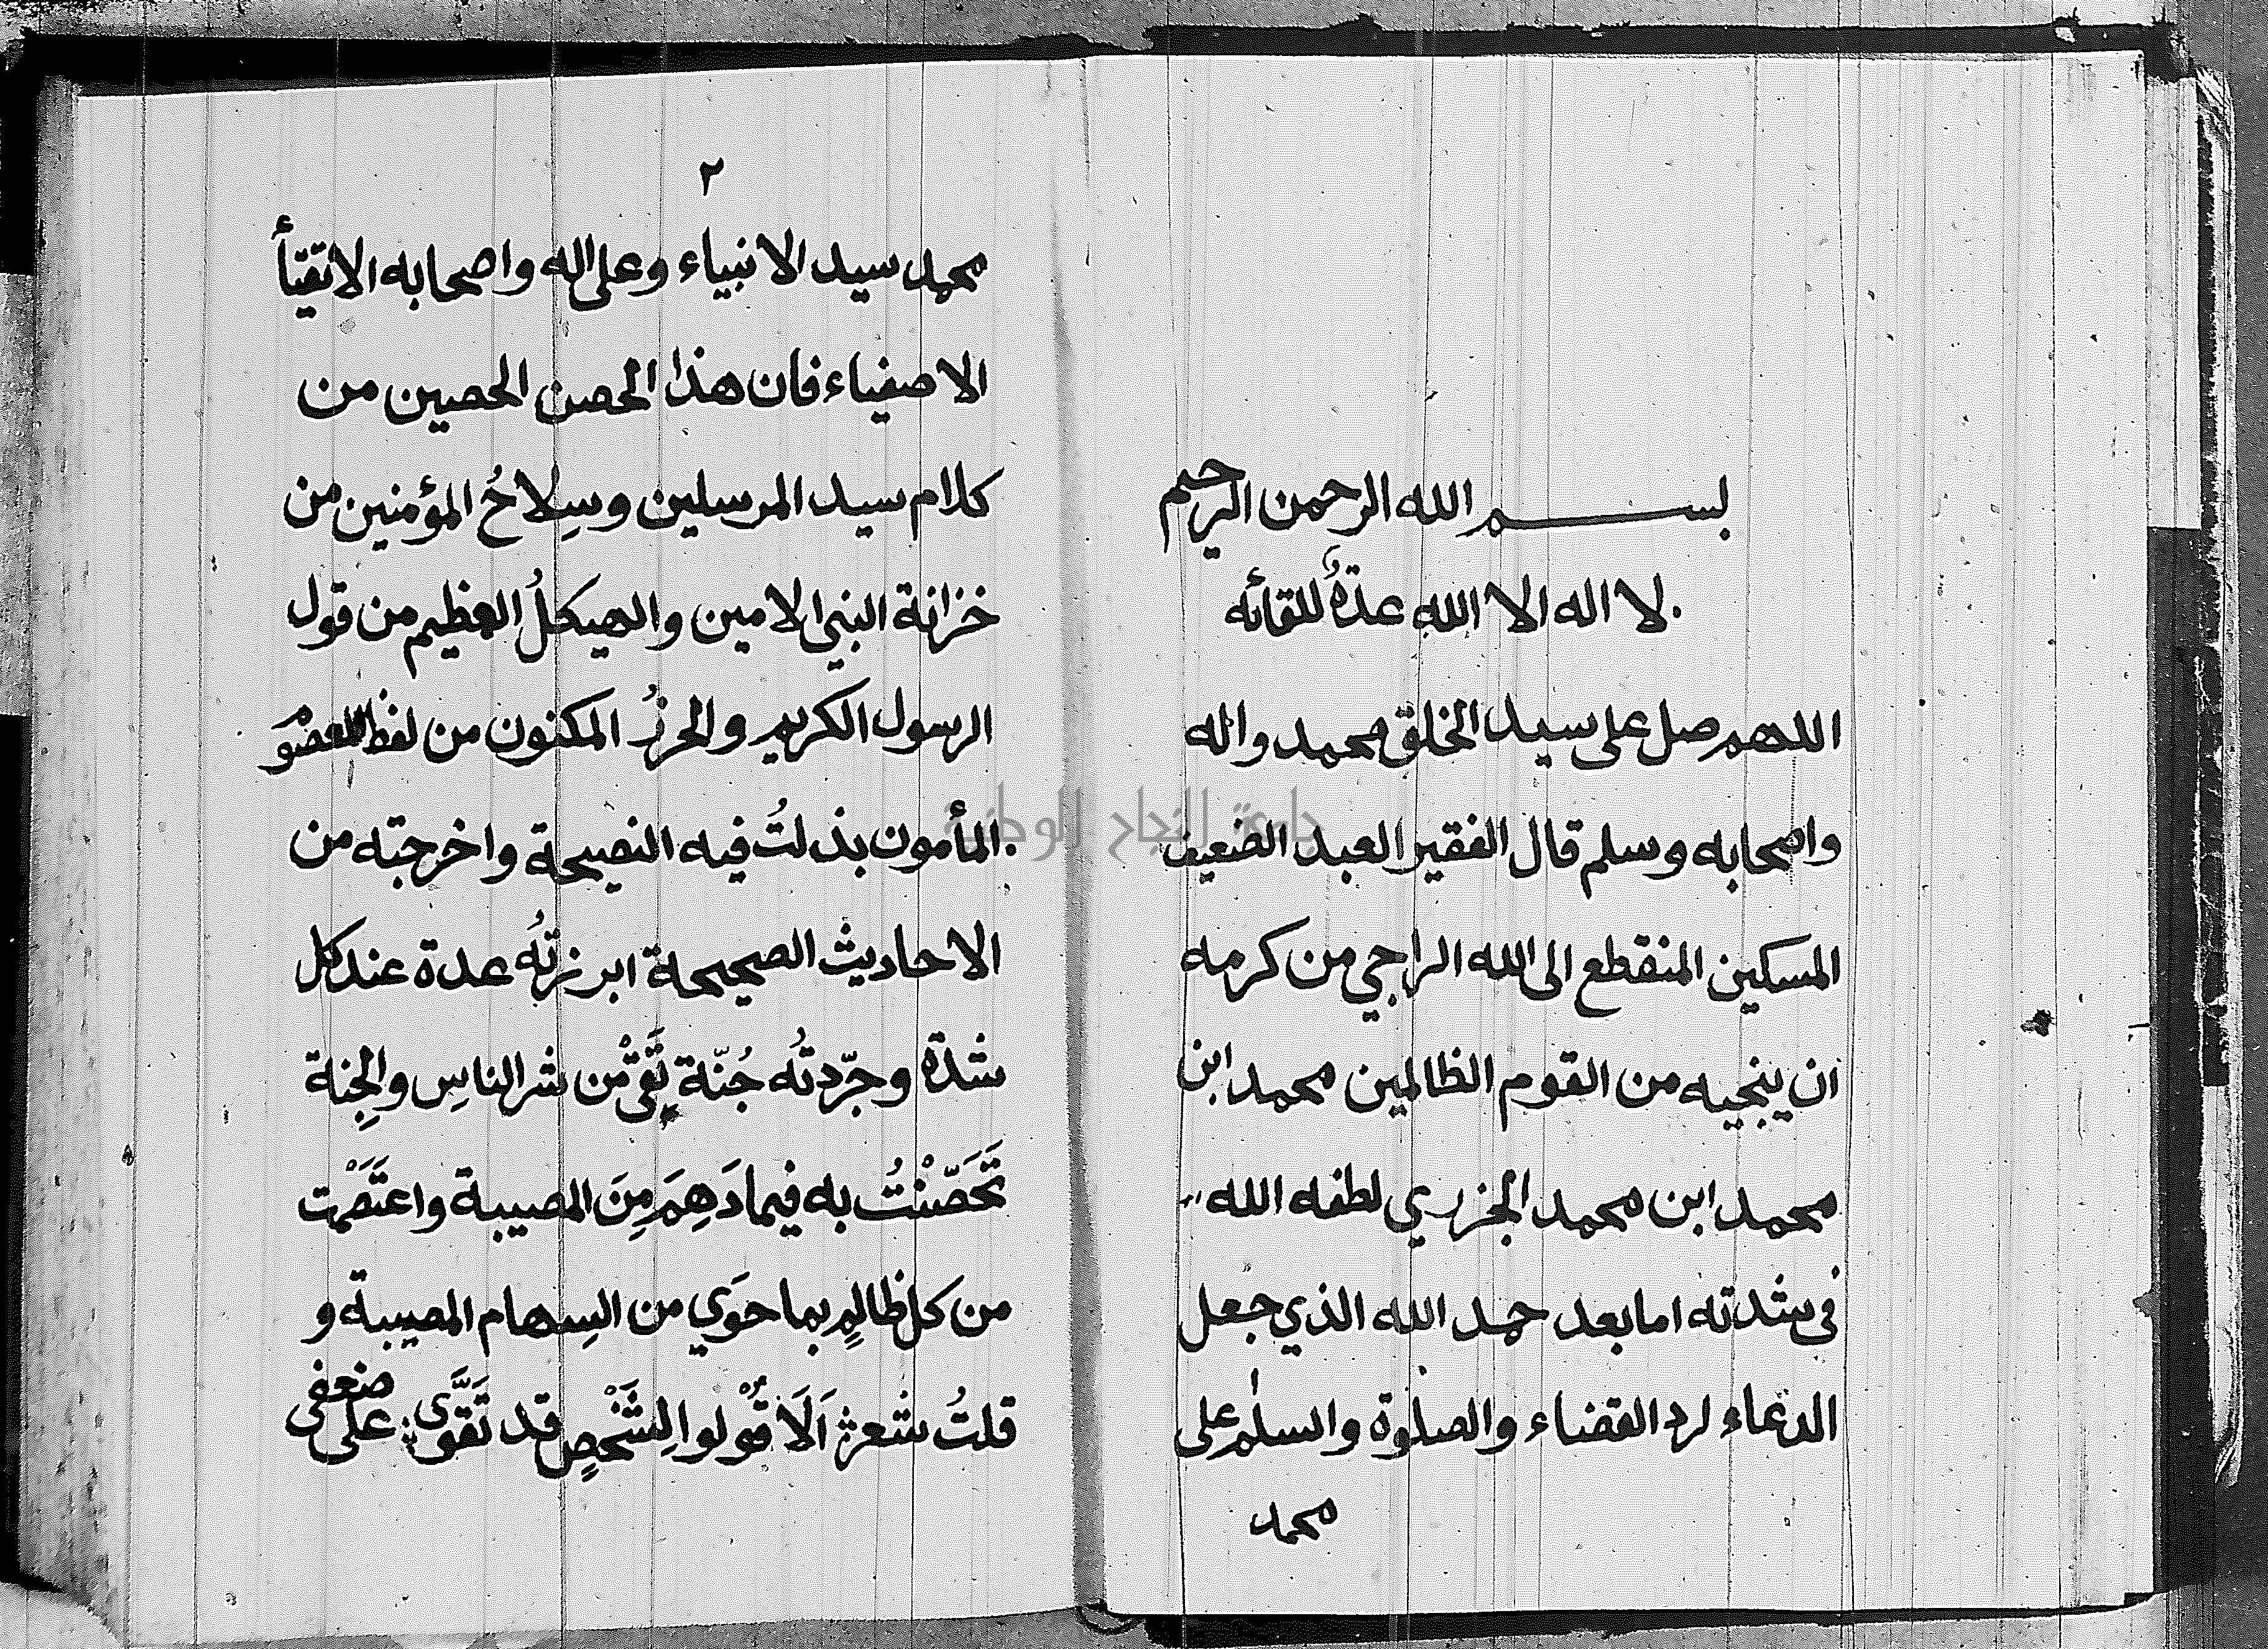 بسم الله الرحمن الرحيم
لا اله الا الله عدةٌ للقائه
اللهم صل على سيد الخلق محمد واله
واصحابه وسلم قال الفقير العبد الضعيف
المسكين المنقطع الى الله الراجي من كرمه
ان ينجيه من القوم الظالمين محمد ابن
محمد ابن محمد الجزري لطفه الله
في شدته اما بعد حمد الله الذي جعل
الدعاء لرد القضاء والصلوة والسلم على
محمد
٢
محمد سيد الانبياء وعلى اله واصحابه الاتقيأ
الاصفياء فان هذا الحصن الحصين من
كلام سيد المرسلين وسِلاحُ المؤمنين من
خزانة النبي الامين والهيكلُ العظيم من قول
الرسول الكريم والحرزُ المكنون من لفظ المعصوم
المأمون بذلتُ فيه النصيحة واخرجته من
الاحاديث الصحيحة ابرزتُه عدة عند كل
شدة وجرّدتُه جُنّة تَقِى مْن شر الناسِ والجِنة
تَحَصّنْتُ به فيما دَهِمَ مِنَ المصيبة واعتَصَمْت
من كل ظالمٍ بما حوَي من السِهام المصيبة و
قلتُ شعر اَلَا قُوْلوا لِشَخْصٍ قد تَقَوَّى على ضعفى
جامعة النجاح الوطنية